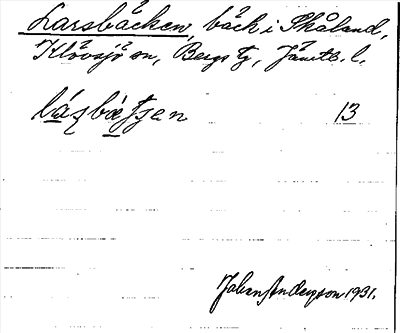 Larsbäcken, bäck i Skåland,
Klövsjö sn, Bergs tg, Jämtl. l.
lázbætjen 13
Johan Anderson 1931.